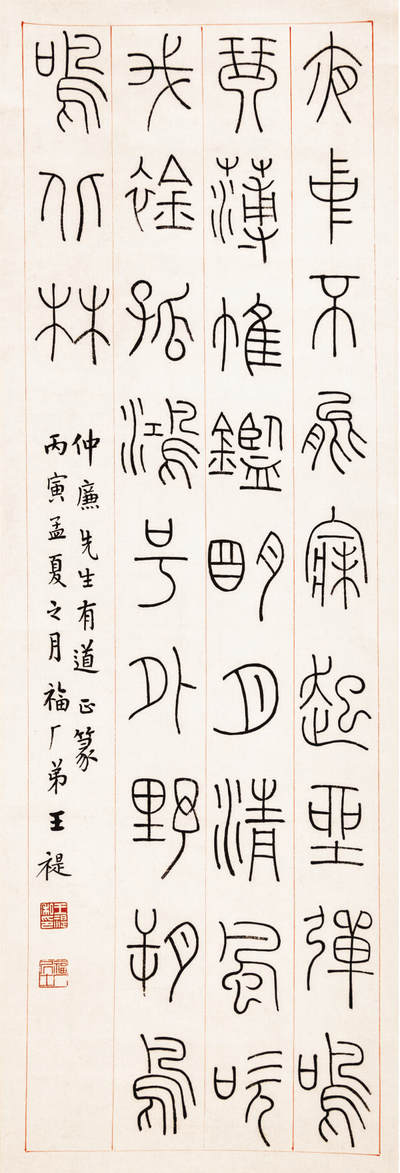 夜中不能寐起坐彈鳴
琴薄帷鑑明月清風吹
我襟孤鴻号外野朔鳥
鳴北林
仲廉先生有道正篆
丙寅孟夏之月福厂弟王禔